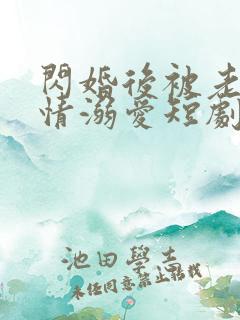 閃婚後被老
情溺愛短劇
池田學志
未任同意禁止轉載